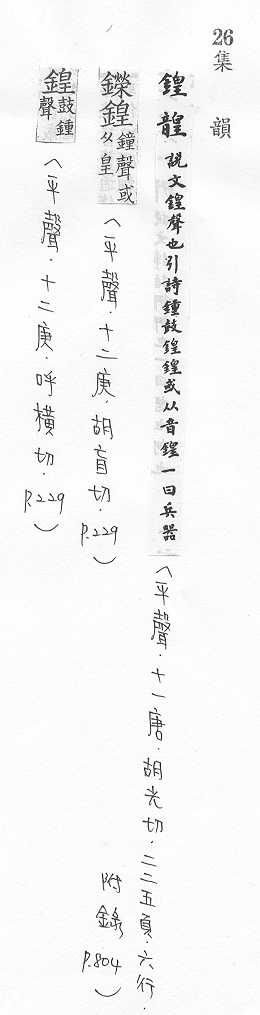 26
集韻
鍠韹說文鍠聲也引詩鍾鼓鍠鍠或从音鍠一曰兵器(平聲.十一唐.胡光切.二二五頁.六行.
附錄P.804)
鑅鍠鐘聲或从皇(平聲.十二庚.胡盲切.P.229)
鍠鼓鍾聲(平聲.十二庚.呼橫切.P.229)